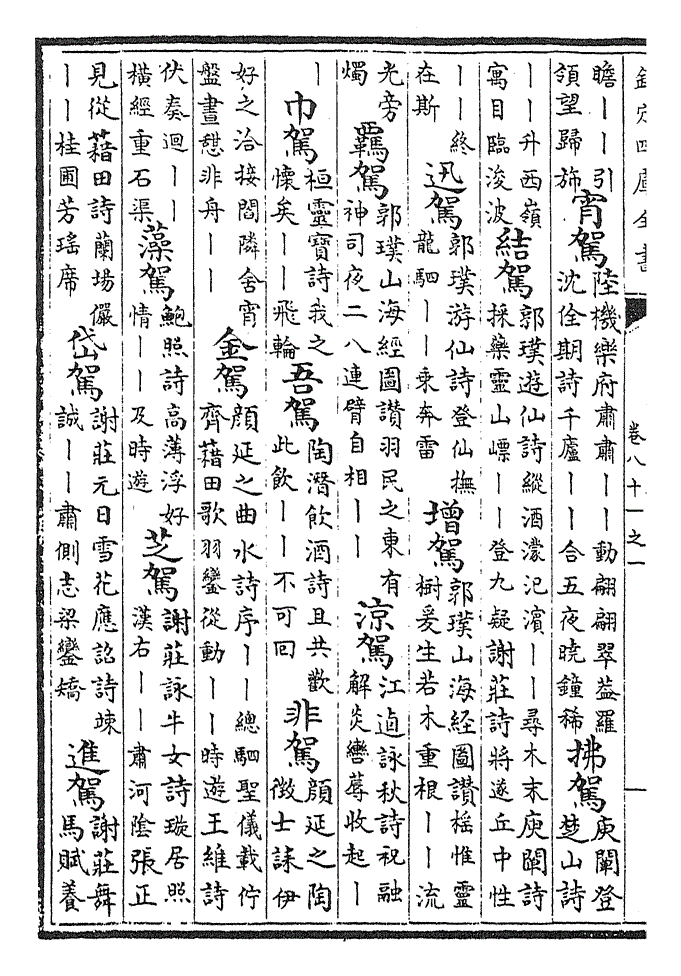 欽定四庫全書 卷八十一之一
瞻丨丨引領望歸斾 宵駕 陸機樂府肅肅丨丨動翩翩翠蓋羅沈佺期詩千廬丨丨合五夜曉鐘稀 拂駕 庾闡登楚山詩
丨丨升西嶺寓目臨浚波 結駕 郭璞遊仙詩縱酒濛汜濱丨丨尋木末庾闡詩採藥靈山嶛丨丨登九疑謝莊詩將遂丘中性
丨丨終在斯 迅駕 郭璞游仙詩登仙撫龍駟丨丨乘奔雷 增駕 郭璞山海經圖讚榣惟靈樹爰生若木重根丨丨流
光旁燭 羈駕 郭璞山海經圖讚羽民之東有神司夜二八連臂自相丨丨 涼駕 江逌詠秋詩祝融解炎轡蓐收起丨
丨 巾駕 桓靈寶詩我之懷矣丨丨飛輪 吾駕 陶潛飲酒詩且共歡此飲丨丨不可回 非駕 顔延之陶徵士誄伊
好之洽接閻隣舍宵盤晝憇非舟丨丨 金駕 顔延之曲水詩序丨丨總駟聖儀載佇齊藉田歌羽鑾從動丨丨時遊王維詩
伏奏迴丨丨橫經重石渠 藻駕 鮑照詩高薄浮好情丨丨及時遊 芝駕 謝莊詠牛女詩璇居照漢右丨丨肅河陰張正
見從藉田詩蘭場儼丨丨桂圃芳瑤席 岱駕 謝莊元日雪花應詔詩竦誠丨丨肅側志梁鑾矯 進駕 謝莊舞馬賦養